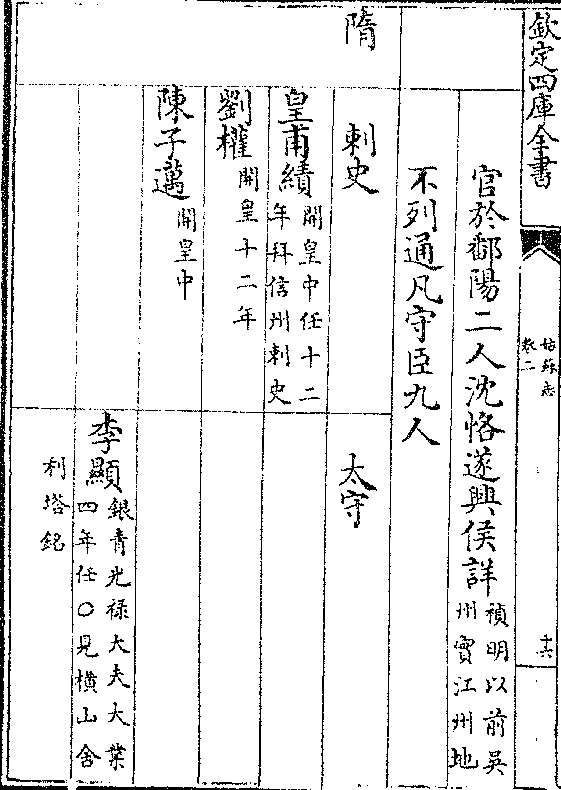 欽定四庫全書
姑蘇志
卷二
十六
官於鄱陽二人沈恪遂興侯詳
禎明以前吳
州實江州地
不列通凡守臣九人
隋
刺史
太守
皇甫績
開皇中任十二
年拜信州刺史
劉權
開皇十二年
陳子邁
開皇中
李顯
銀青光祿大夫大業
四年任○見橫山舍
利塔銘